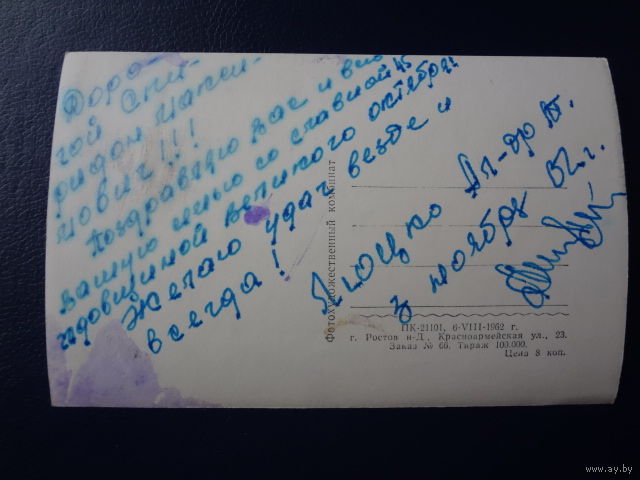 Доро-
гой Спи-
ридон Макси-
мович!!!
Поздравляю вас и всю
вашую семью со славной 45
годовщиной Великого октября.
Желаю удач везде и
всегда!
Ал-др
3 ноября 62 г.
Фотохудожественный комбинат
ПК-21101, 6-VIII-1962 г.
г. Ростов н-Д., Красноармейская ул., 23.
Заказ № 66. Тираж 100.000.
Цена 8 коп.
www.ay.by